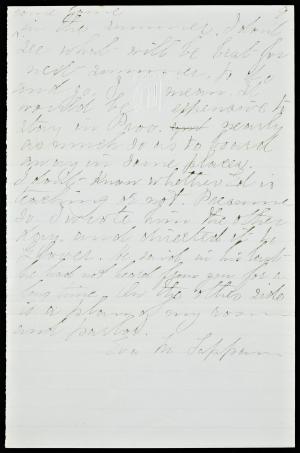 some time
in the summer. I don't
see what will be best for
next summer, to go
and so I mean. It
would be expensive to
stay in Prov. nearly
as much so as to board
away in some places.
I don't know whether Ed is
teaching or not. Presume
so. I wrote him the other
day. and directed it to
He said in his last
he had not heard from you for a
long time. On the other side
is a plan of my room
and parlor.
Eva M Tappan